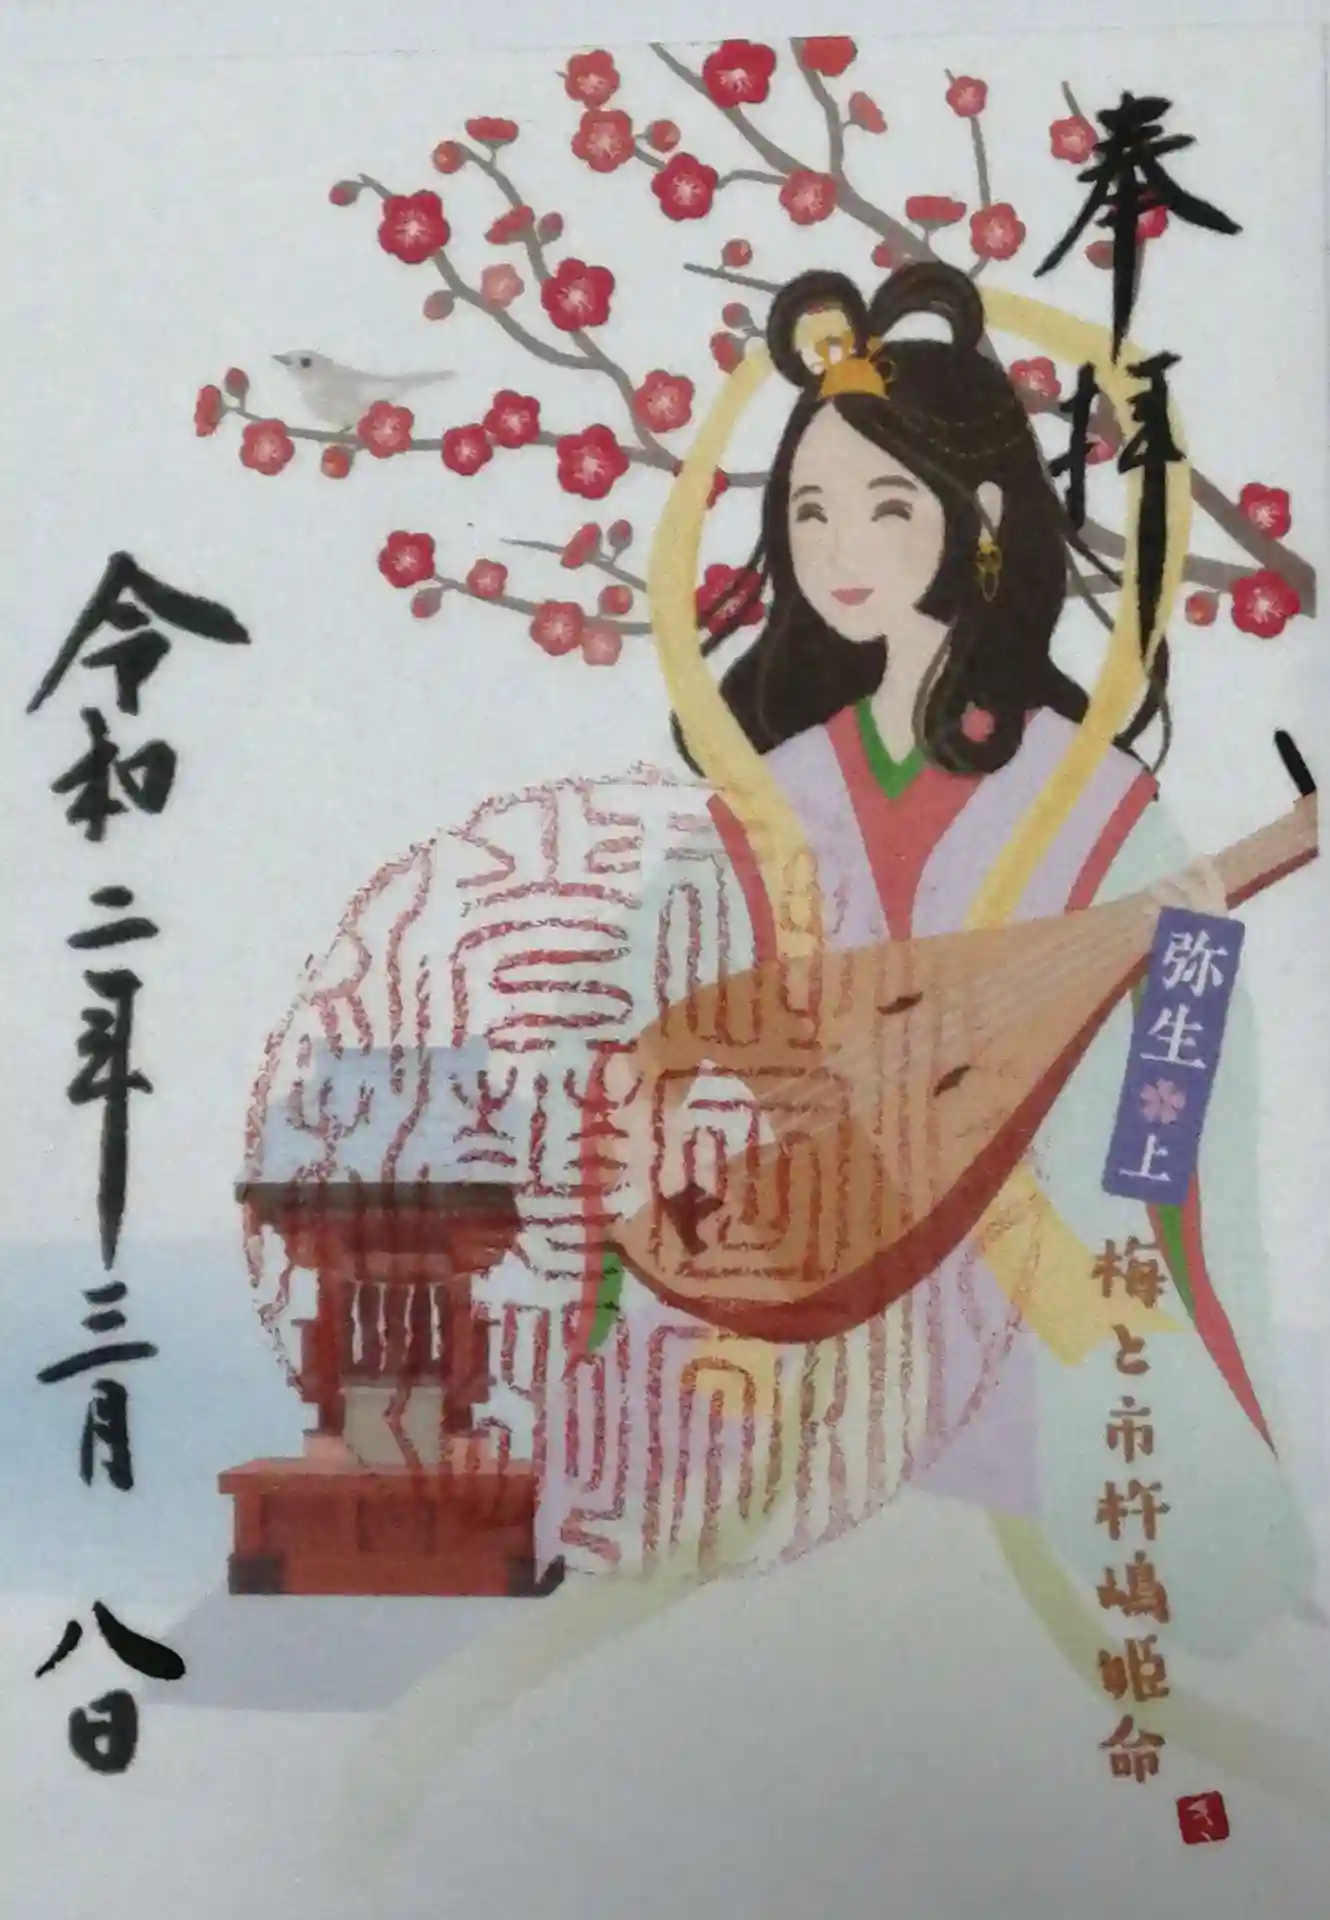 奉拝
弥生
上
梅と市杵嶋姫命
令和二年三月八日